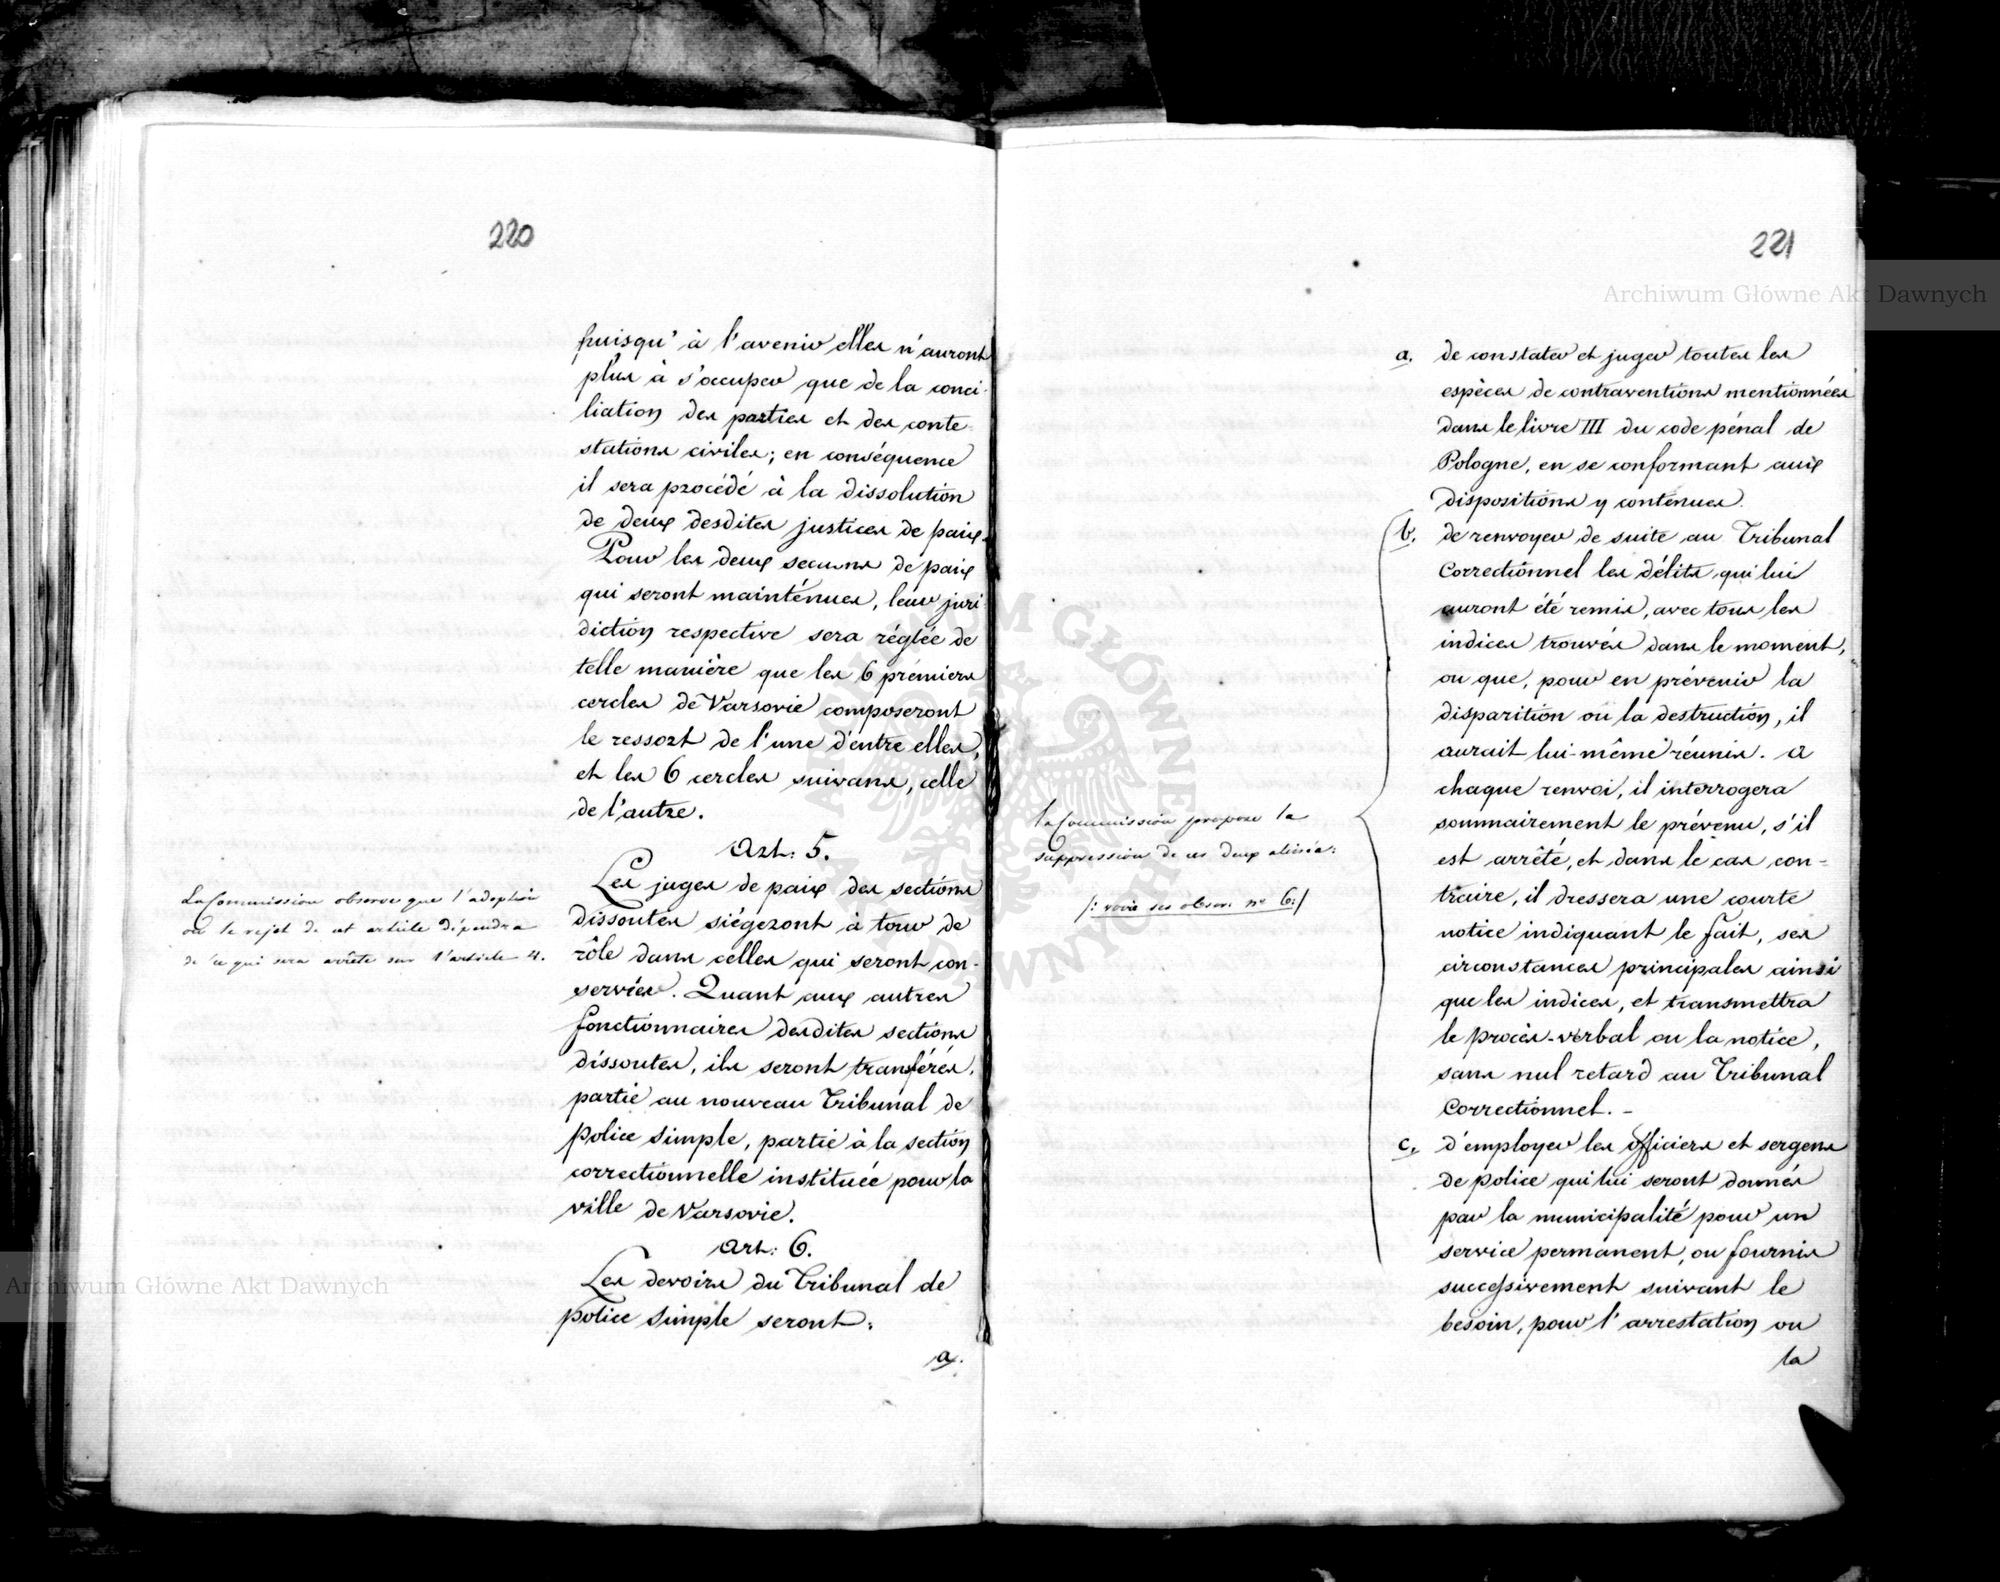 220
puisqu' à l'avenir elles n'auront
plus à s'occuper que de la conci-
liation des parties et des conte-
stations civiles; en conséquence
il sera procédé à la dissolution
de deux desdites justices de paix.
Pour les deux
de paix
qui seront mainténues, leur juri-
diction respective sera réglée de
telle manière que les 6 prémiers
cercles de Varsovie composeront
le ressort de l'une d'entre elles,
et les 6 cercles suivans, celle
de l'autre.
Art: 5.
Les juges de paix des sections
dissoutes siégeront à tour de
rôle dans celles qui seront con-
servées. Quant aux autres
fonctionnaires desdites sections
dissoutes, ils seront transférés,
partie au nouveau Tribunal de
police simple, partie à la section
correctionnelle instituée pour la
ville de Varsovie.
Art: 6.
Les devoirs du Tribunal de
police simple seront:
a.
La Commission observe que l'adoption
ou le rejet de cet article dépendra
de ce qui sera arrêté sur l'article 4.
221
a. de constater et juger toutes les
espèces de contraventions mentionnées
dans le livre III du code pénal de
Pologne, en se conformant aux
dispositions y contenues.
b. de renvoyer de suite au Tribunal
Correctionnel les délits qui lui
auront été remis, avec tous les
indices trouvés dans le moment,
ou que, pour en prévenir la
disparition ou la destruction, il
aurait lui-même réunis. A
chaque renvoi, il interrogera
sommairement le prévenu, s'il
est arrêté, et dans le cas con-
traire, il dressera une courte
notice indiquant le fait, ses
circonstances principales ainsi
que les indices, et transmettra
le procès-verbal ou la notice,
sans nul retard au Tribunal
Correctionnel. -
c. d'employer les officiers et sergens
de police qui lui seront donnés
par la municipalité pour un
service permanent, ou fournis
successivement suivant le
besoin, pour l'arrestation ou
la
la Commission propose la
suppression de ces deux alinéa:
/: voir ses observ: nº 6:/
Archiwum Główne Akt Dawnych
Archiwum Główne Akt Dawnych